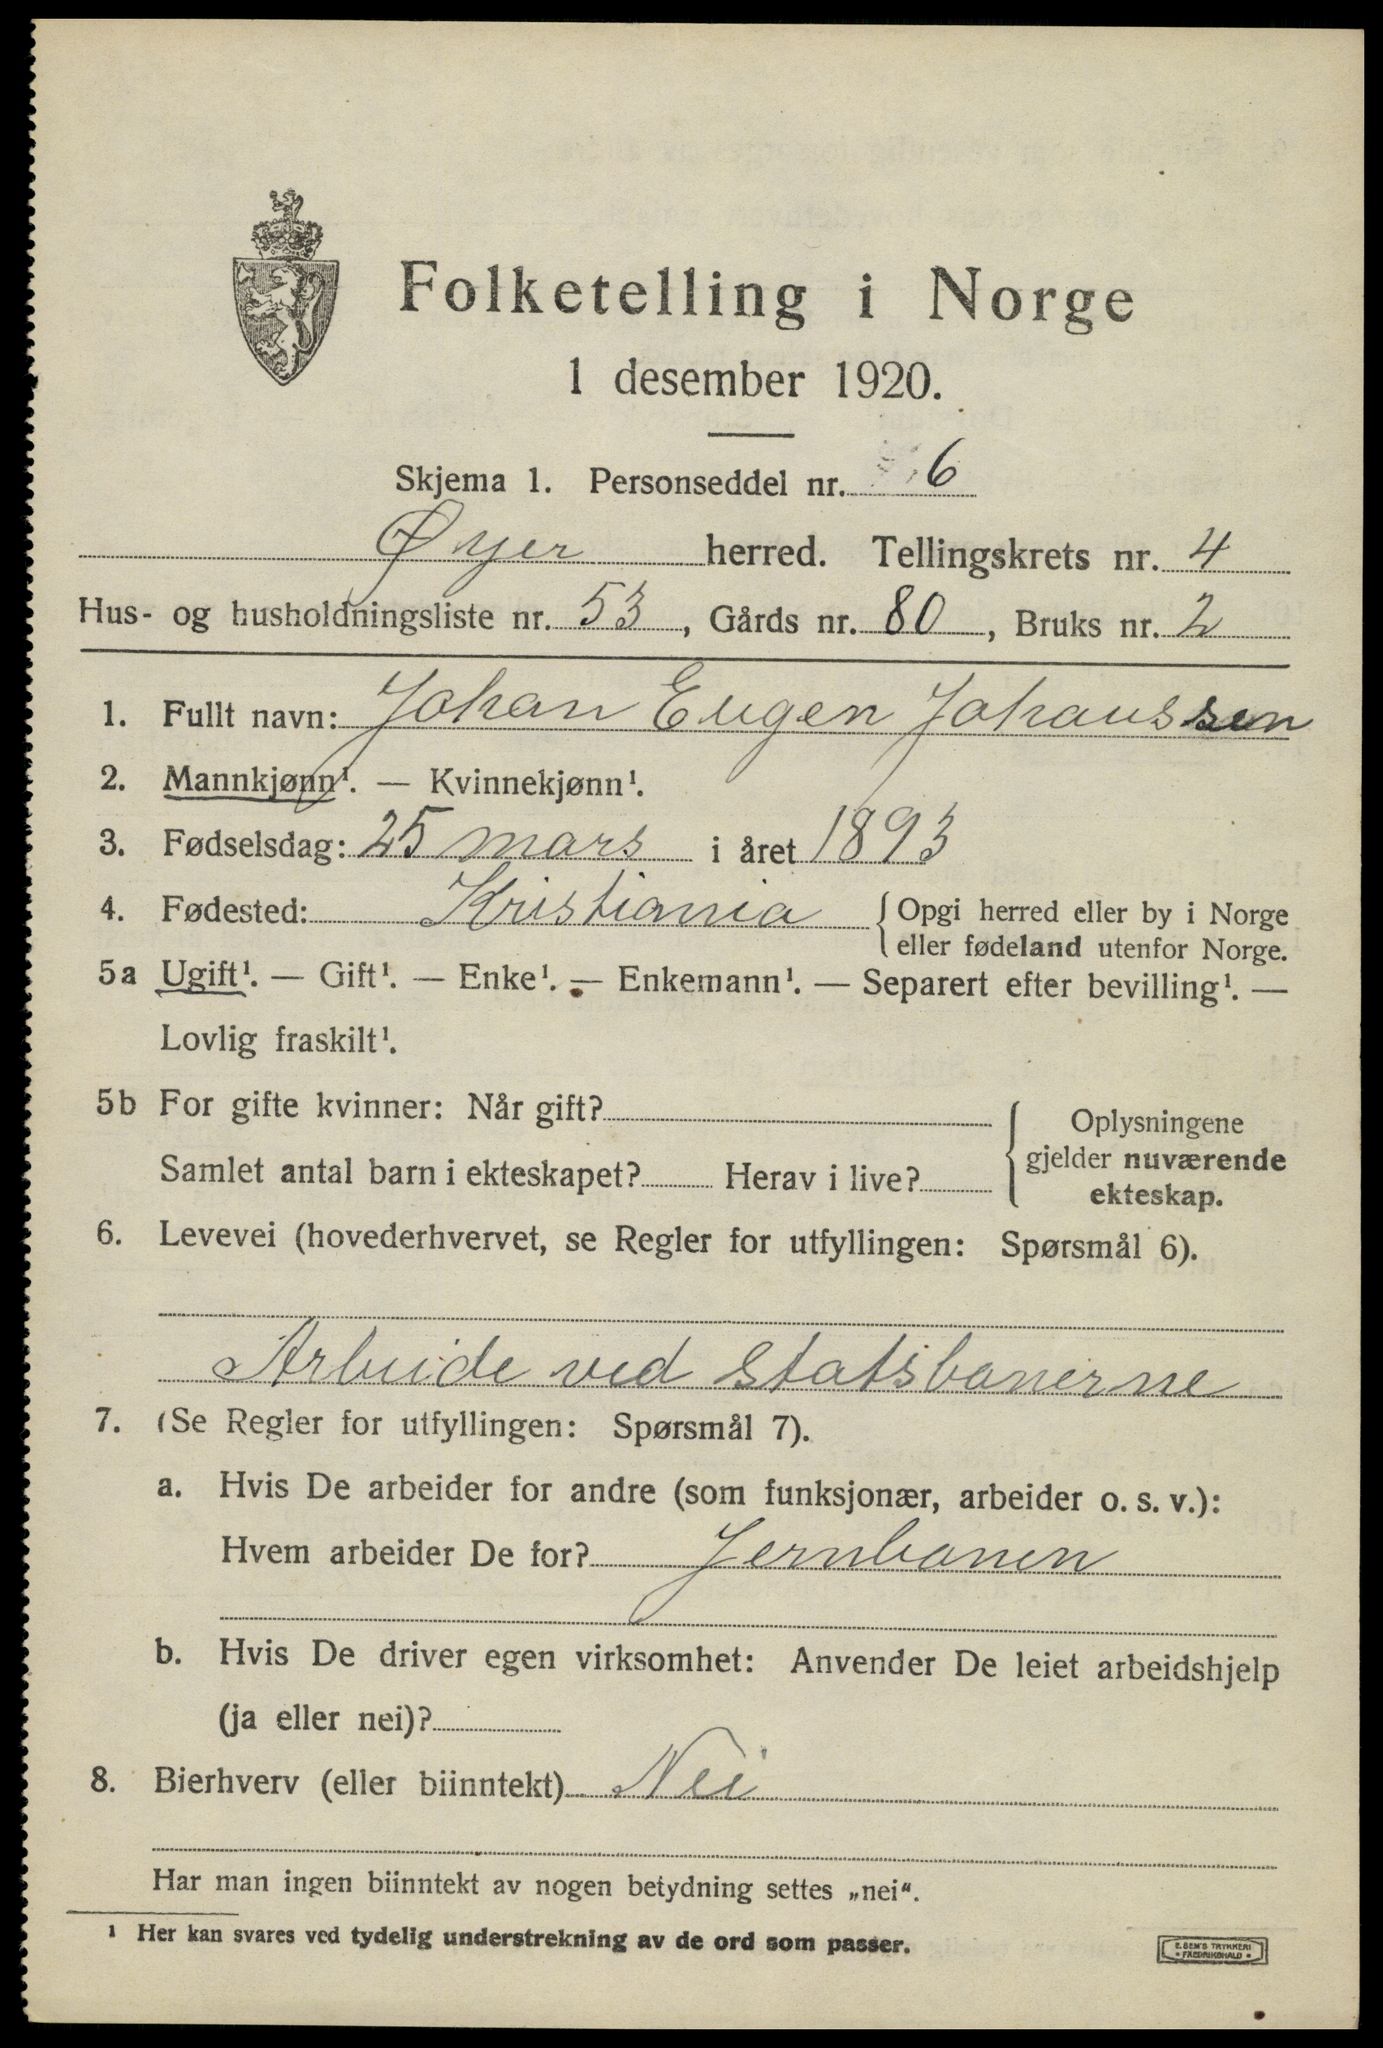 Folketelling i Norge
1 desember 1920.
Skjema 1. Personseddel nr. 6
Øyer herred. Tellingskrets nr. 4
Hus- og husholdningsliste nr. 53, Gårds nr. 80, Bruks nr. 2
1. Fullt navn: Johan Eugen Johanssen
2. Mannkjønn¹. — Kvinnekjønn¹.
3. Fødselsdag: 25 mars i året 1893
4. Fødested: Kristiania { Opgi herred eller by i Norge
eller fødeland utenfor Norge.
5a Ugift¹. — Gift¹. — Enke¹. — Enkemann¹. — Separert efter bevilling¹. —
Lovlig fraskilt¹.
5b For gifte kvinner: Når gift?
Samlet antal barn i ekteskapet? Herav i live?
Oplysningene
gjelder nuværende
ekteskap.
6. Levevei (hovederhvervet, se Regler for utfyllingen: Spørsmål 6).
Arbeide ved Statsbanerne
7. (Se Regler for utfyllingen: Spørsmål 7).
a. Hvis De arbeider for andre (som funksjonær, arbeider o. s. v.):
Hvem arbeider De for? Jernbanen
b. Hvis De driver egen virksomhet: Anvender De leiet arbeidshjelp
(ja eller nei)?
8. Bierhverv (eller biinntekt) Nei
Har man ingen biinntekt av nogen betydning settes „nei“.
¹ Her kan svares ved tydelig understrekning av de ord som passer.
E. SEM'S TRYKKERI
• FREDRIKSHALD •